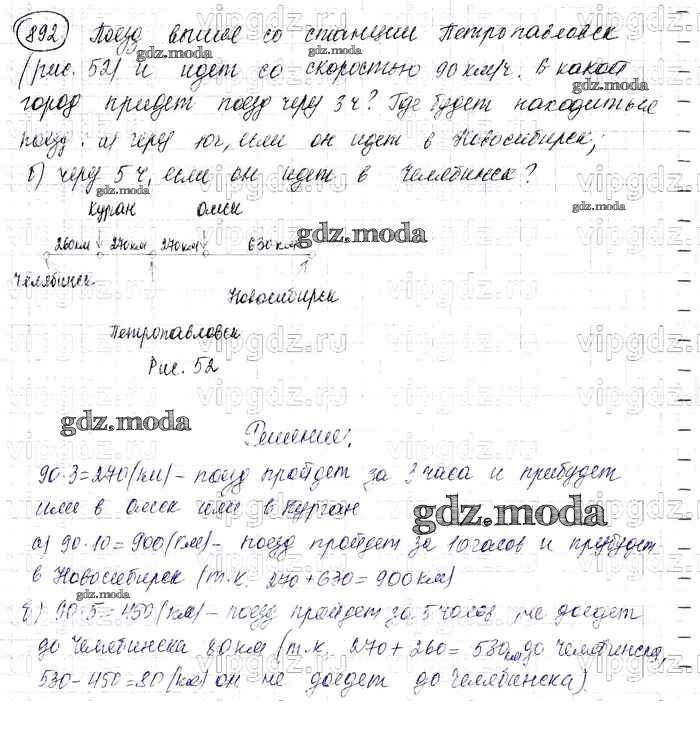 892) Поезд вышел со станции Петропавловск
(рис. 52) и идет со скоростью 90 км/ч. В какой
город придет поезд через 3 ч? Где будет находиться
поезд: а) через 10ч, если он идет в Новосибирск;
б) через 5 ч, если он идет в Челябинск?
Курган Омск
260км 270км 270км 630 км
Челябинск
Новосибирск
Петропавловск
Рис. 52
Решение:
90·3=270(км) – поезд пройдет за 3 часа и прибудет
или в Омск или в Курган
а) 90·10=900(км) – поезд пройдет за 10 часов и прибудет
в Новосибирск (т.к. 270+630=900км)
б) 90·5=450(км) – поезд пройдет за 5 часов не доедет
до Челябинска 80 км (т.к. 270+260=530км до Челябинска,
530-450=80(км) он не доедет до Челябинска).
gdz.moda
vipgdz.ru